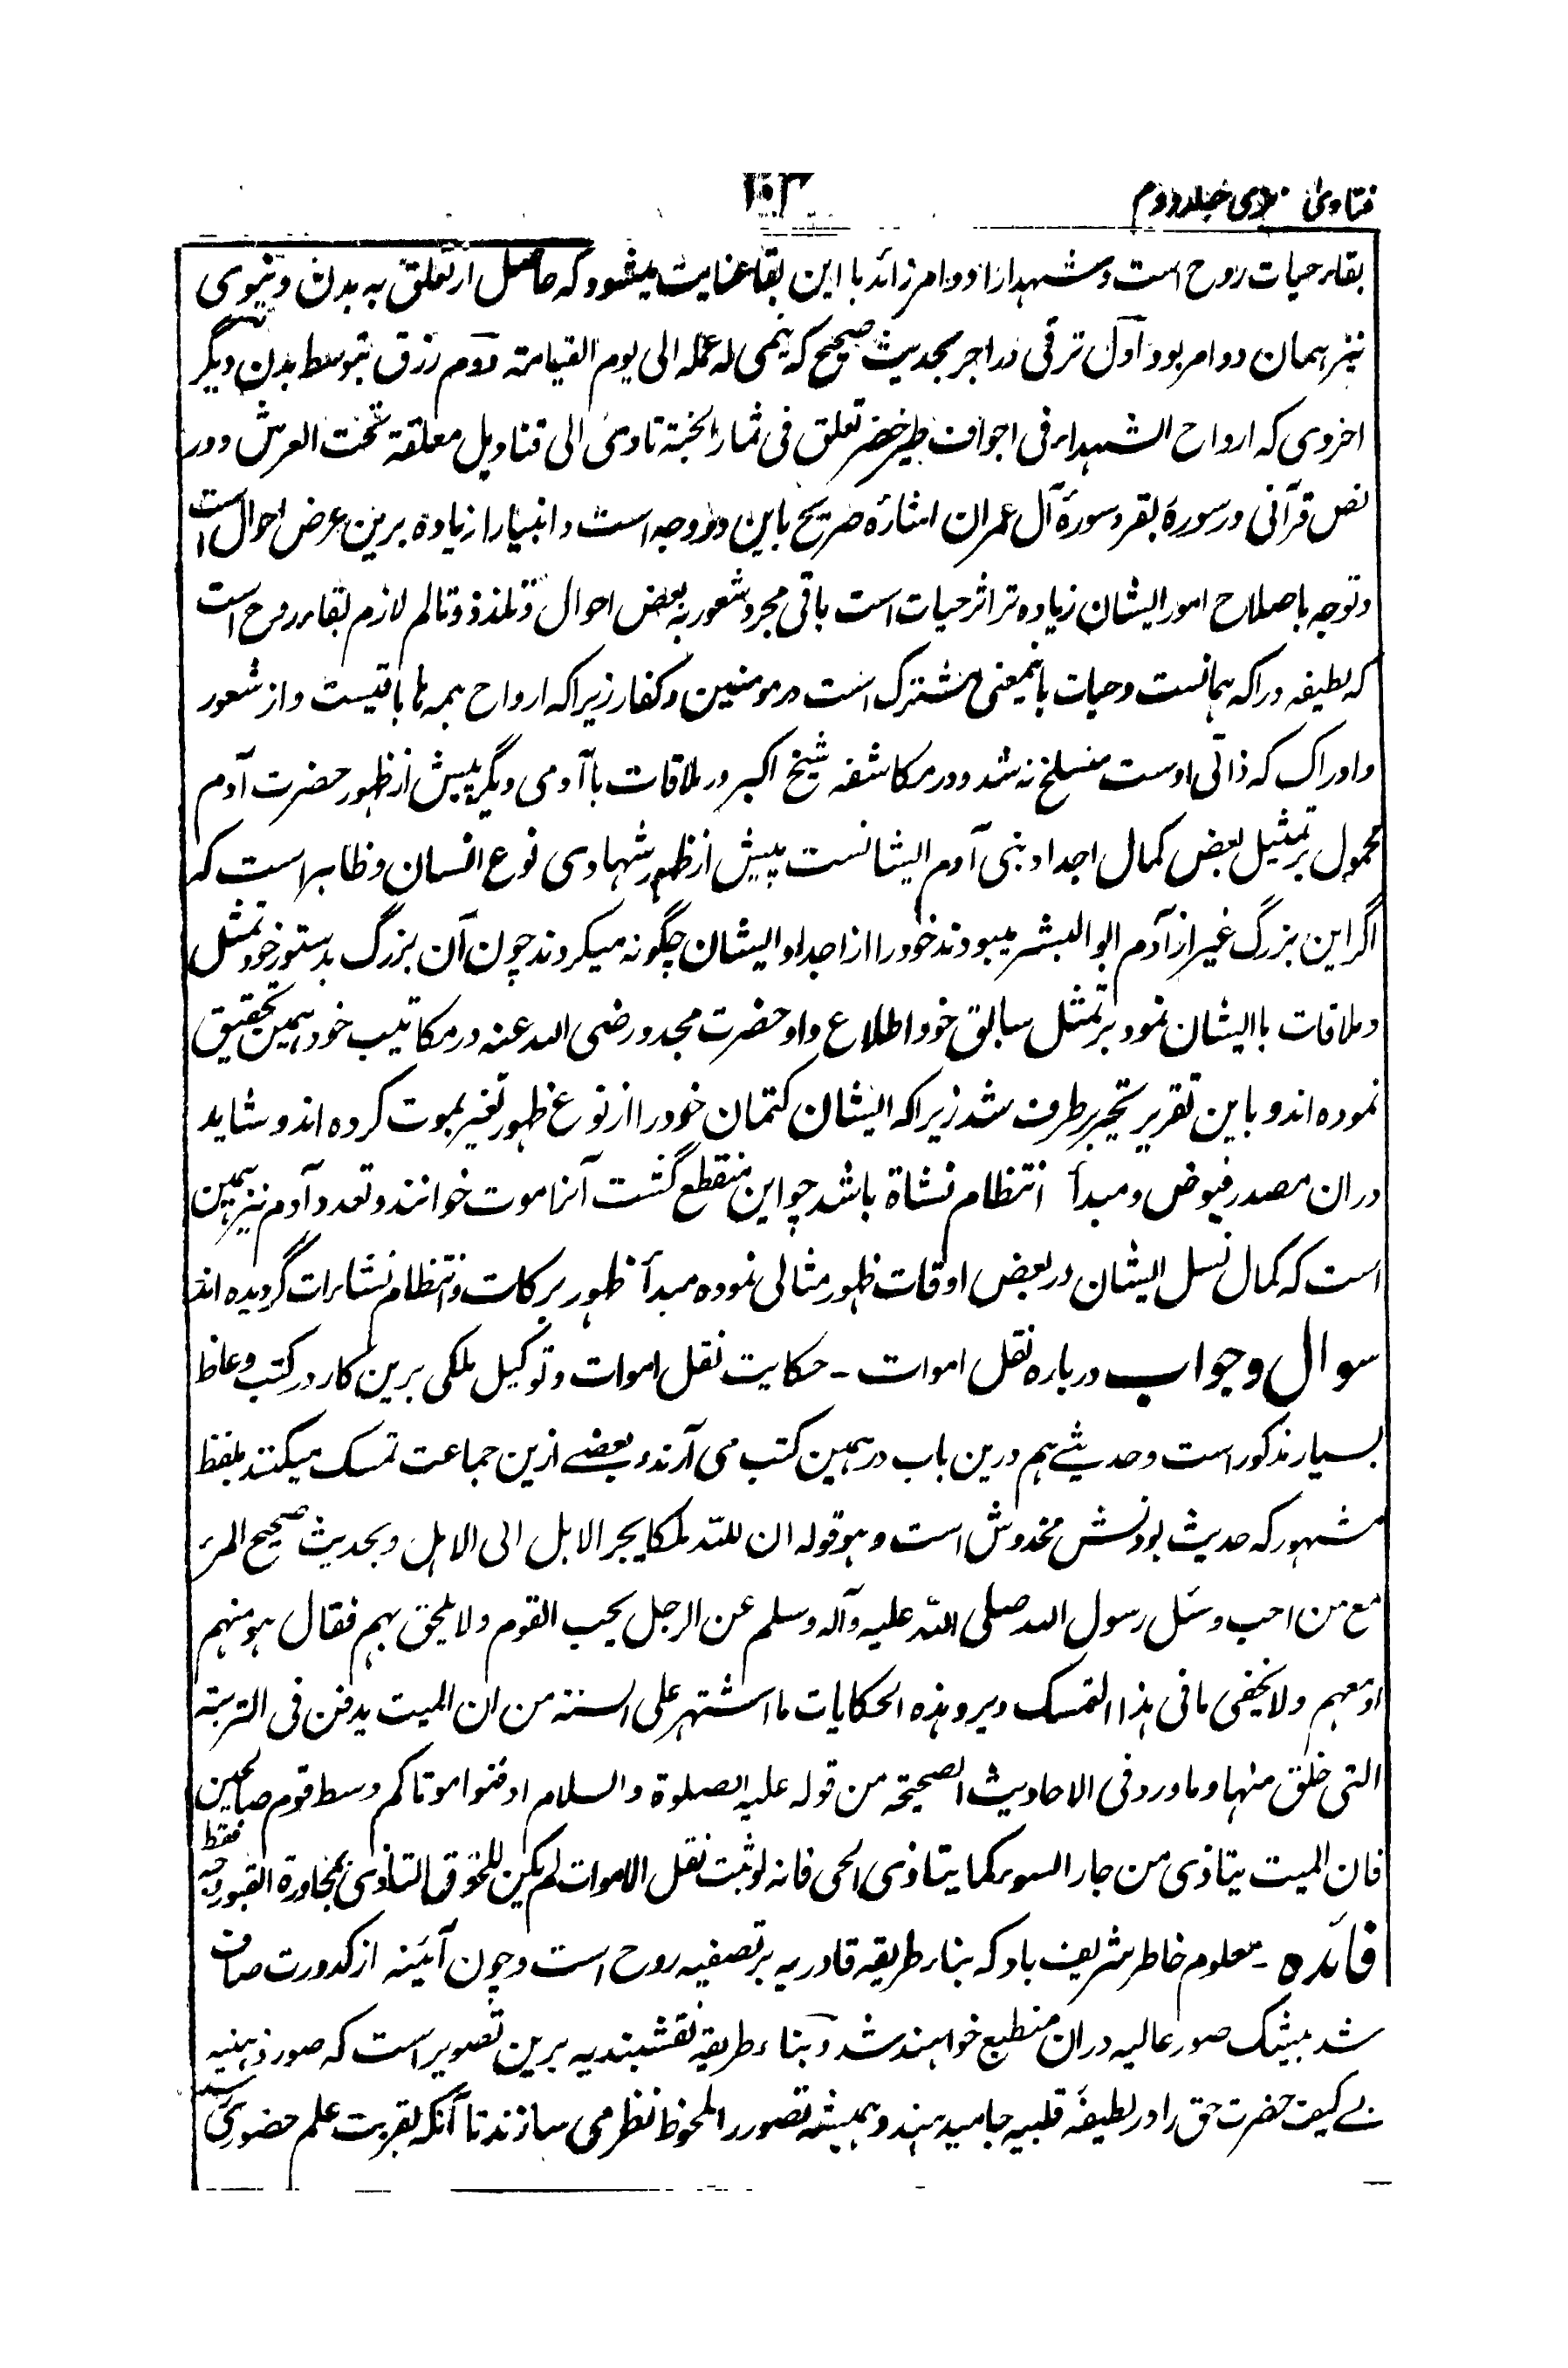 فتاوی عزیزی جلد دوم
۱۰۳
بقاء حیات روح است و شهدا را دو امر زائد با این بقا عنایت میشود که حاصل از تعلق به بدن دنیوی
نیز همان دو امر بود اول ترقی در اجر بحدیث صحیح که ینمی له عمله الی یوم القیامة دوم رزق بتوسط بدن دیگر
اخروی که ارواح الشهداء فی اجواف طیر خضر تعلق فی ثمار الجنة تاوی الی قنادیل معلقة تحت العرش و در
نص قرآنی در سورهٔ بقر و سورهٔ آل عمران اشاره صریح باین دو وجه است و انبیا را زیاده برین عرض احوال است
و توجه باصلاح امور ایشان زیاده تر اثر حیات است باقی مجرد شعور به بعض احوال و تلذذ و تالم لازم بقاء روح است
که لطیفه دراکه همانست و حیات باینمعنی مشترک است در مومنین و کفار زیرا که ارواح همه ها باقیست و از شعور
و ادراک که ذاتی اوست منسلخ نه شد و در مکاشفه شیخ اکبر در ملاقات با آدمی دیگر پیش از ظهور حضرت آدم
محمول بر تمثیل بعض کمال اجداد بنی آدم ایشانست پیش از ظهور شهادی نوع انسان و ظاهر است که
اگر این بزرگ غیر از آدم ابو البشر میبودند خود را از اجداد ایشان چگونه میکردند چون آن بزرگ بدستور خود تمثل
و ملاقات با ایشان نمود بر تمثل سابق خود اطلاع داد حضرت مجدد رضی الله عنه در مکاتیب خود همین تحقیق
نموده اند و باین تقریر تحیر برطرف شد زیرا که ایشان کتمان خود را از نوع ظهور تغیر بموت کرده اند و شاید
دران مصدر فیوض و مبدأ انتظام نشاة باشد چو این منقطع گشت آنرا موت خوانند و تعدد آدم نیز همین
است که کمال نسل ایشان در بعض اوقات ظهور مثالی نموده مبدأ ظهور برکات و انتظام نشاءرات گردیده اند
سوال و جواب درباره نقل اموات - حکایت نقل اموات و توکیل ملکی برین کار در کتب وعاظ
بسیار مذکور است و حدیثے هم درین باب در همین کتب می آرند و بعضے ازین جماعت تمسک میکنند بلفظ
مشهور که حدیث بودنش مخدوش است و هو قوله ان لله ملکا یجر الاہل الی الاہل و بحدیث صحیح المرء
مع من احب و سئل رسول الله صلی الله علیه وآله وسلم عن الرجل یحب القوم ولا یلحق بهم فقال هو منهم
او معهم ولا یخفی ما فی هذا التمسک ویرد هذه الحکایات ما اشتهر علی السنة من ان المیت یدفن فی التربة
التی خلق منها وما ورد فی الاحادیث الصحیحة من قوله علیه الصلوة والسلام ادفنوا موتاکم وسط قوم صالحین
فان المیت یتاذی من جار السوء کما یتاذی الحی فانه لو ثبت نقل الاموات لم یکن للحوق التاذی بمجاورة القبور وجه فقط
فائده - معلوم خاطر شریف باد که بناء طریقه قادریه بر تصفیه روح است و چون آئینه از کدورت صاف
شد بیشک صور عالیه دران منطبع خواهند شد و بناء طریقه نقشبندیه برین تصویر است که صور ذهنیه
بے کیف حضرت حق را در لطیفهٔ قلبیه جا میدهند و همیشه تصور را ملحوظ نظر می سازند تا آنکه بقربت علم حضوری